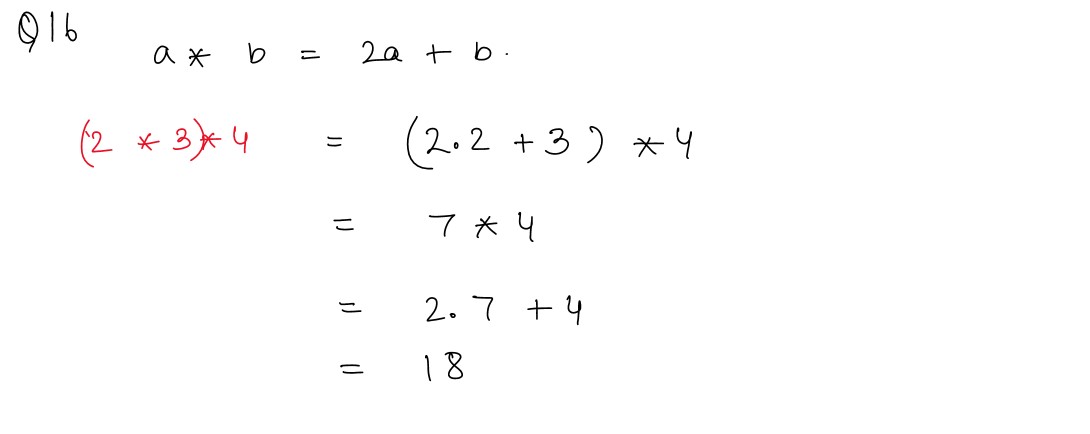 Q16
a * b = 2a + b.
(2 * 3) * 4 = (2.2 + 3) * 4
= 7 * 4
= 2.7 + 4
= 18